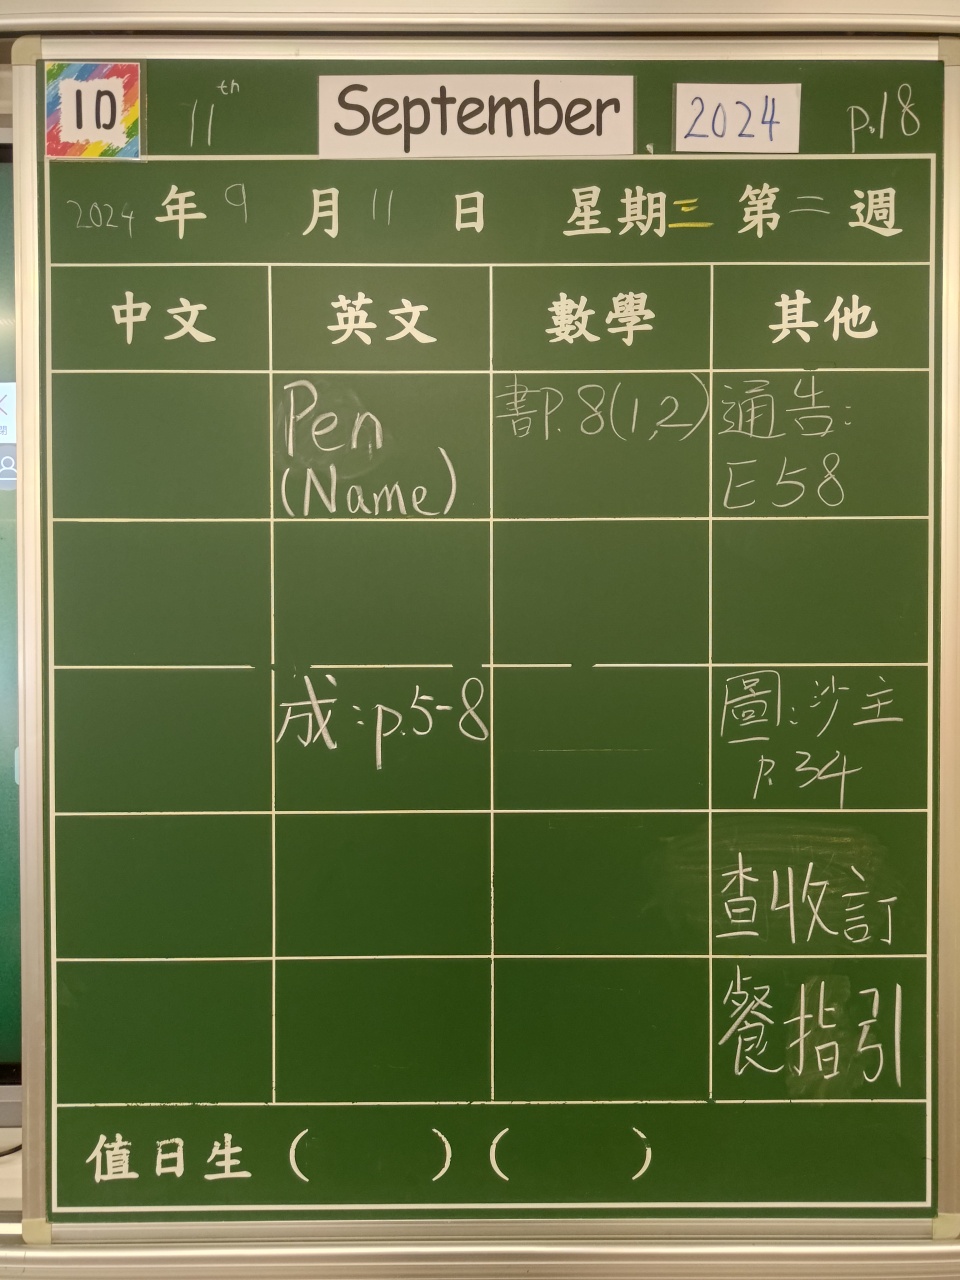 1D 11th September, 2024 p.18
2024年9月11日 星期三 第二週
中文 英文 數學 其他
Pen 書P.8(1,2) 通告:
(Name) E58
成:p.5-8 圖:沙主
P.34
查收訂
餐指引
值日生 ( ) ( )